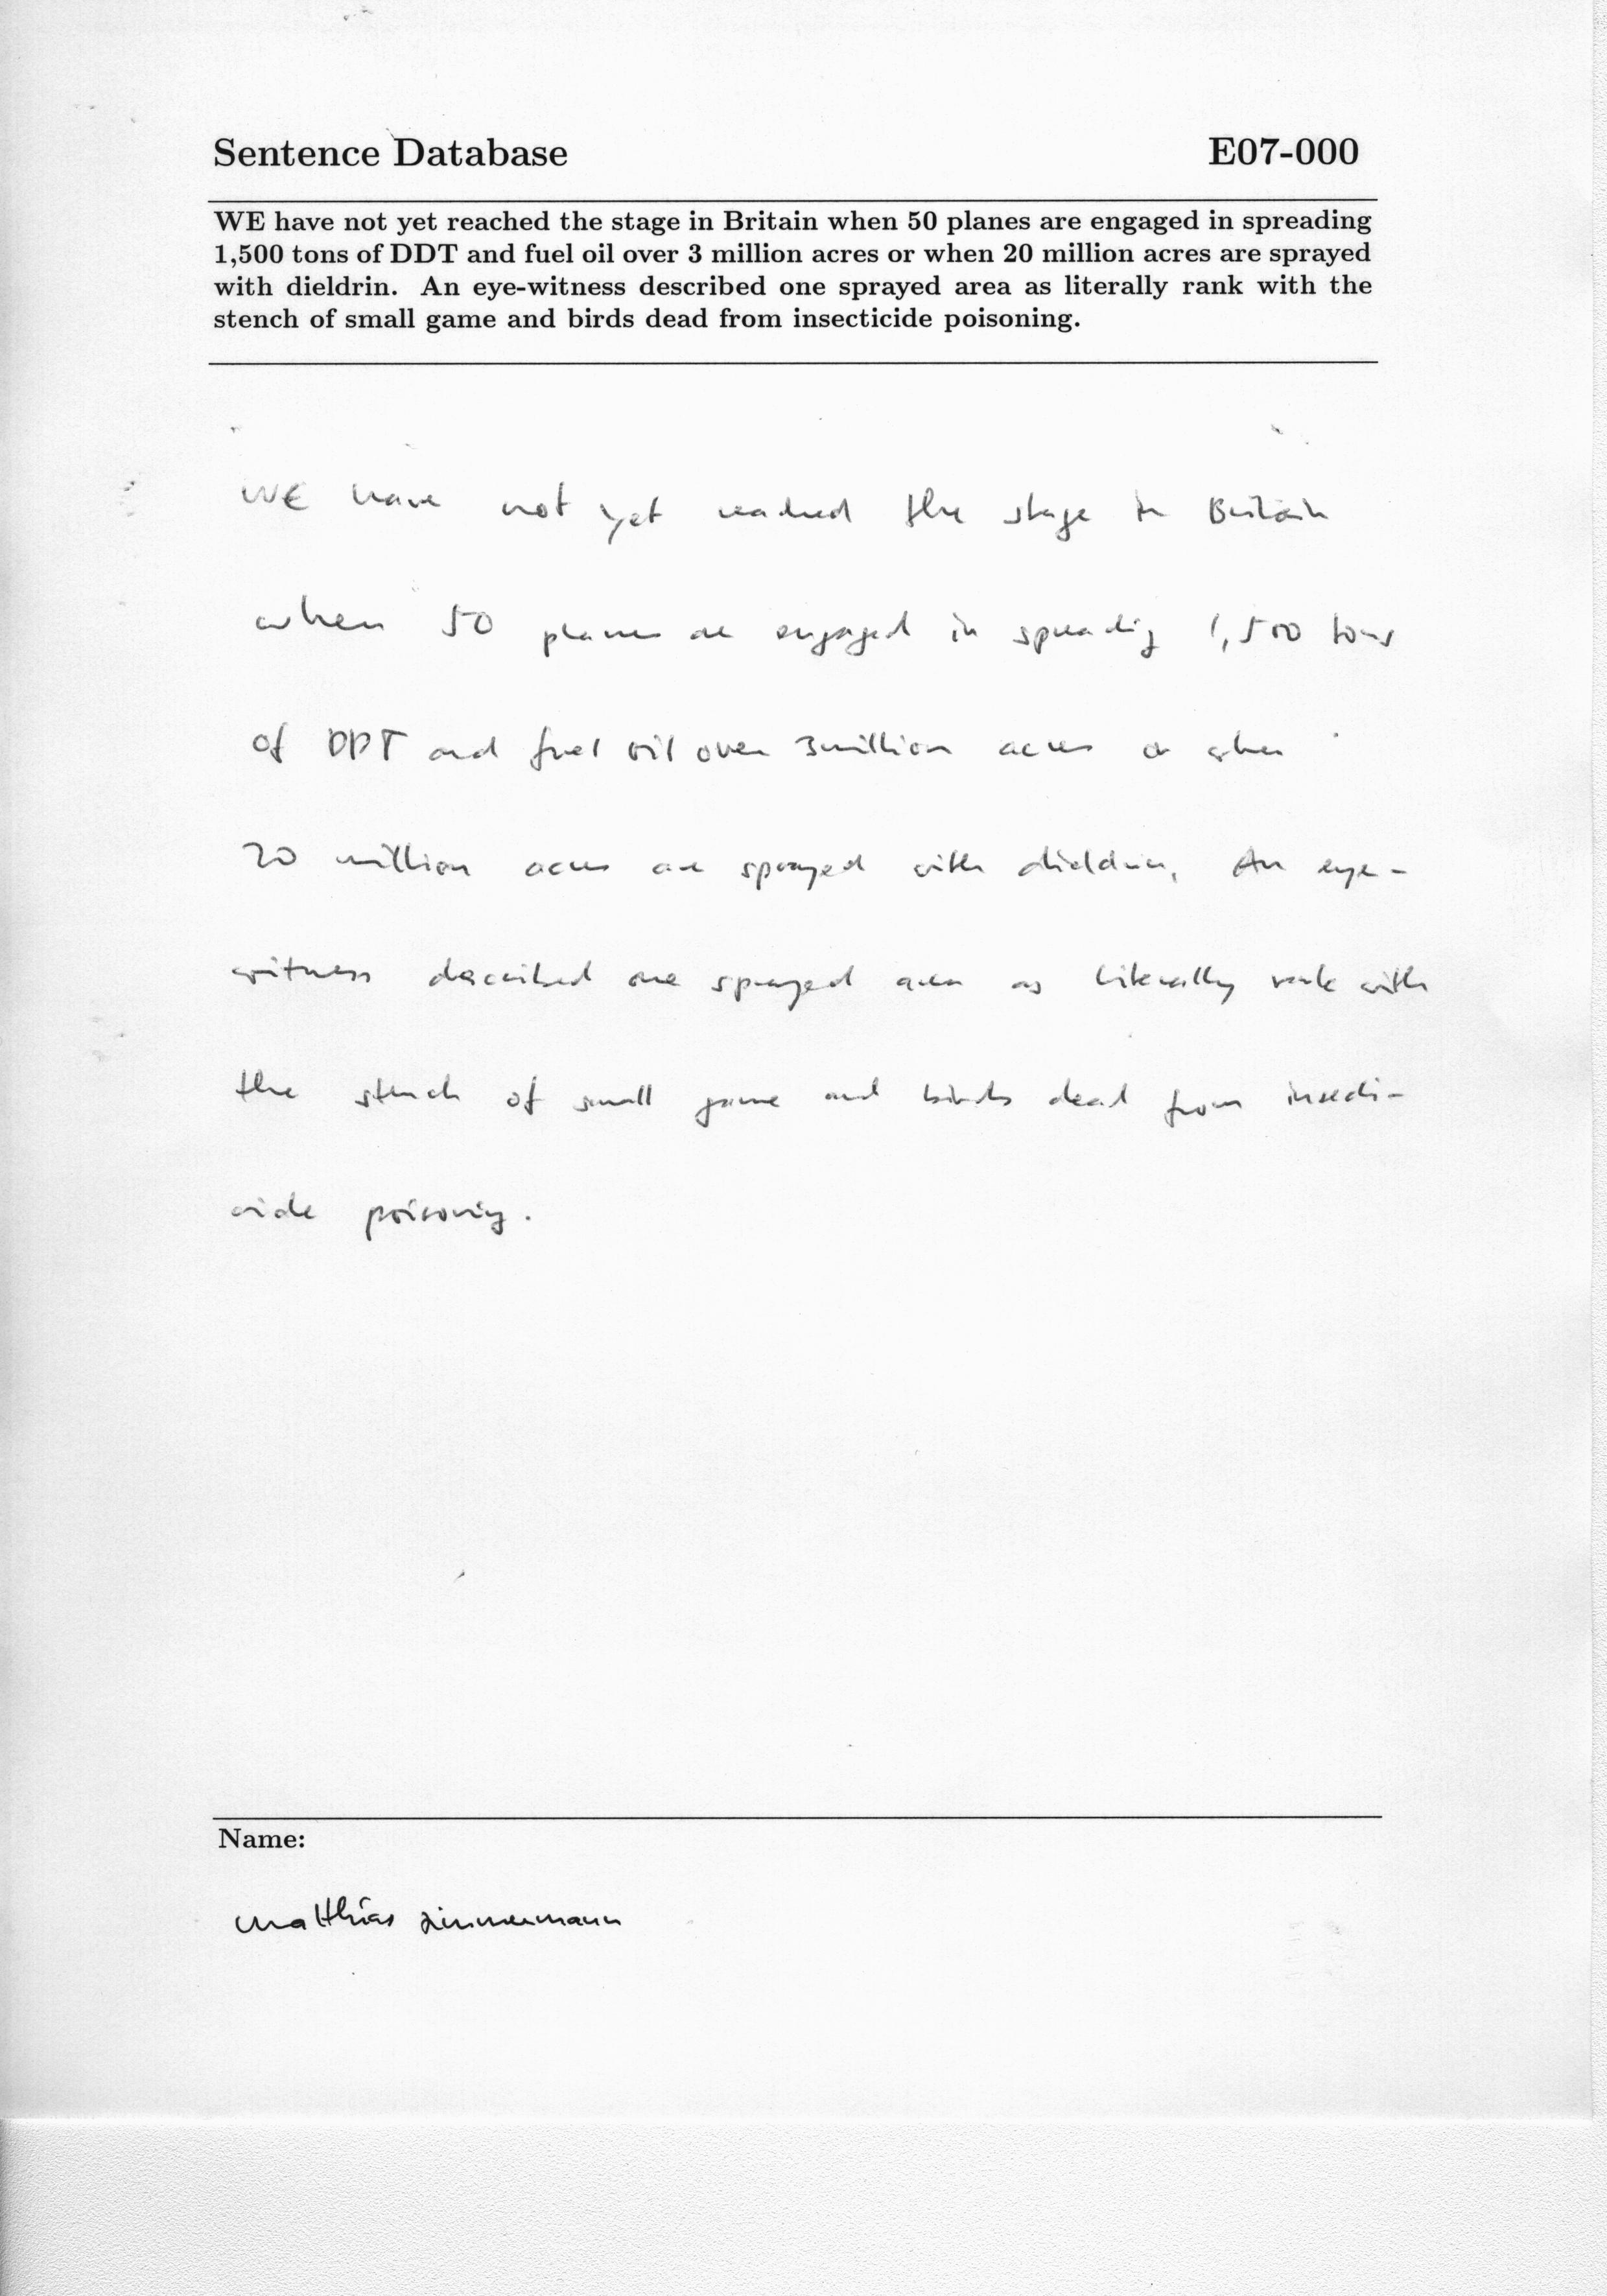 Sentence Database E07-000
WE have not yet reached the stage in Britain when 50 planes are engaged in spreading
1,500 tons of DDT and fuel oil over 3 million acres or when 20 million acres are sprayed
with dieldrin. An eye-witness described one sprayed area as literally rank with the
stench of small game and birds dead from insecticide poisoning.
WE have not yet reached the stage in Britain
when 50 planes are engaged in spreading 1,500 tons
of DDT and fuel oil over 3 million acres or when
20 million acres are sprayed with dieldrin, An eye-
witness described one sprayed area as literally rank with
the stench of small game and birds dead from insecti-
cide poisoning.
Name:
Matthias Zimmermann